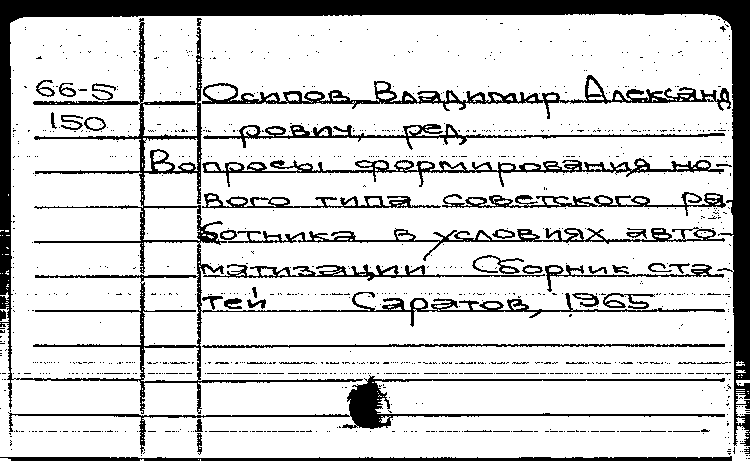 66-5 Осипов, Владимир Александ
150 рович, ред.
Вопросы формирования но-
вого типа советского ра-
ботника в условиях авто-
матизации. Сборник ста-
тей Саратов, 1965.